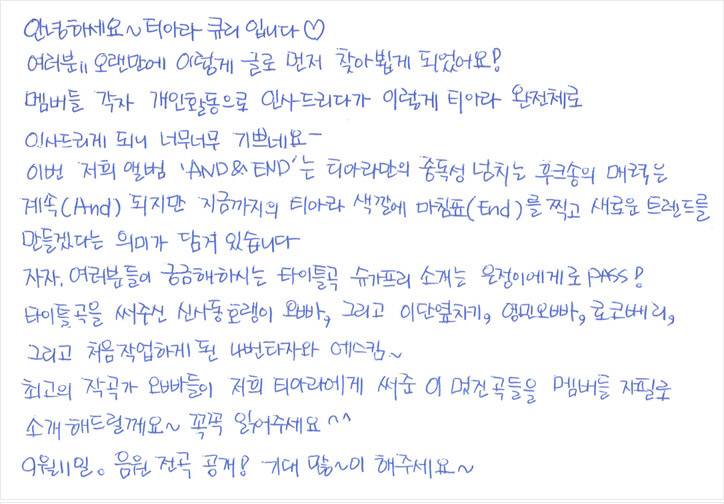 안녕하세요~ 티아라 큐리 입니다♡
여러분!! 오랜만에 이렇게 글로 먼저 찾아뵙게 되었어요!
멤버들 각자 개인활동으로 인사드리다가 이렇게 티아라 완전체로
인사드리게 되니 너무너무 기쁘네요-
이번 저희 앨범 'AND&END'는 티아라만의 중독성 넘치는 후크송의 매력은
계속(And) 되지만 지금까지의 티아라 색깔에 마침표(End)를 찍고 새로운 트렌드를
만들겠다는 의미가 담겨 있습니다
자자, 여러분들이 궁금해하시는 타이틀곡 슈가프리 소개는 은정이에게로 PASS!
타이틀곡을 써주신 신사동호랭이 오빠, 그리고 이단옆차기, 영민오빠, 로코베리,
그리고 처음작업하게 된 4번타자와 에스킴~
최고의 작곡가 오빠들이 저희 티아라에게 써준 이 명전곡들을 멤버들 자필로
소개해드릴께요~ 꼭꼭 읽어주세요^^
9월11일. 음원 전곡 공개! 기대 많~이 해주세요~